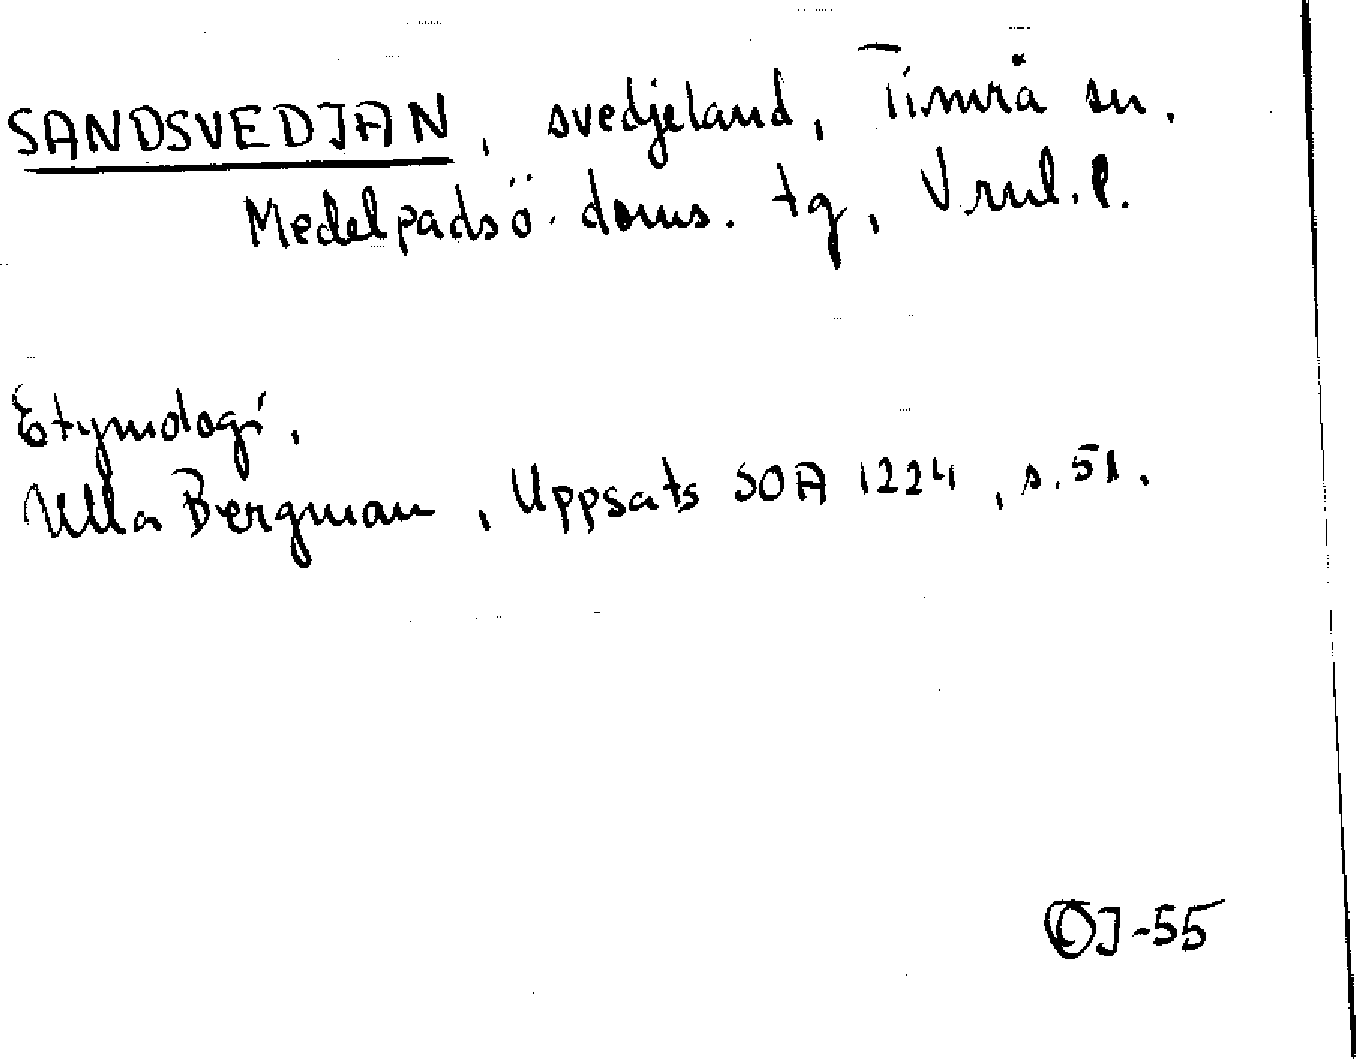 SANDSVEDJAN, svedjeland, Timrå sn.
Medelpads ö. doms. tg, Vnl. l.
Etymologi.
Ulla Bergman, Uppsats SOA 1224, s. 51.
OJ-55